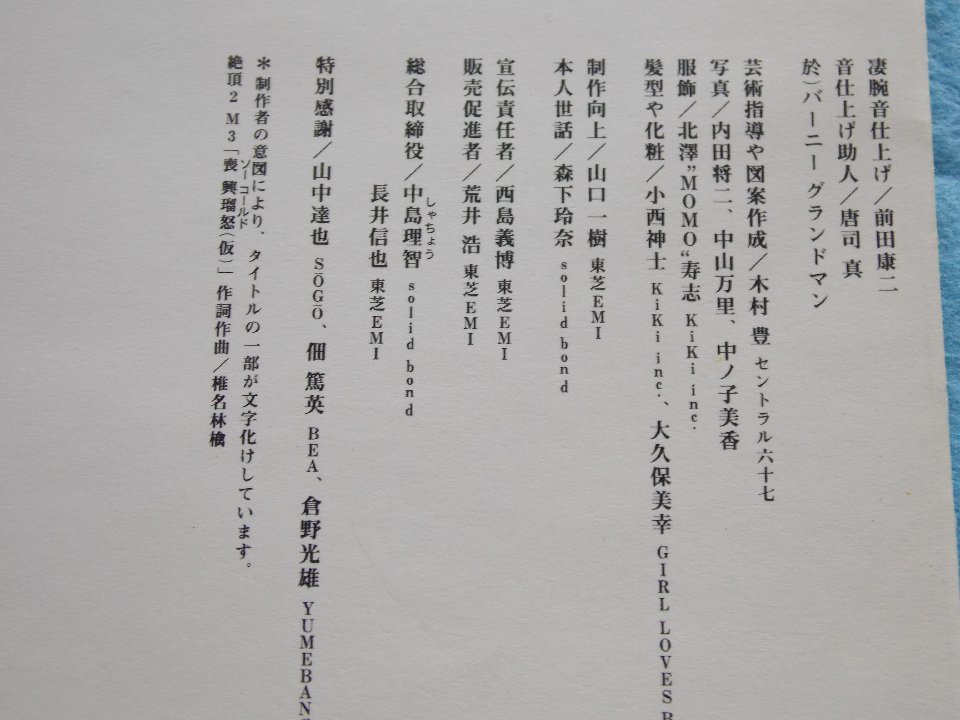 凄腕音仕上げ／前田康二
音仕上げ助人／唐司 真
於）バーニー グランドマン
芸術指導や図案作成／木村 豊 セントラル六十七
写真／内田将二、中山万里、中ノ子美香
服飾／北澤”MOMO“寿志 KiKi inc.
髪型や化粧／小西神士 KiKi inc.、大久保美幸 GIRL LOVES
制作向上／山口一樹 東芝EMI
本人世話／森下玲奈 solid bond
宣伝責任者／西島義博 東芝EMI
販売促進者／荒井 浩 東芝EMI
総合取締役／中島理智 solid bond
しゃちょう
長井信也 東芝EMI
特別感謝／山中達也 SŌGŌ、佃 篤英 BEA、倉野光雄 YUMEBAN
＊制作者の意図により、タイトルの一部が文字化けしています。
絶頂2 M3「喪 興瑠怒（仮）」作詞作曲／椎名林檎
ソーコールド